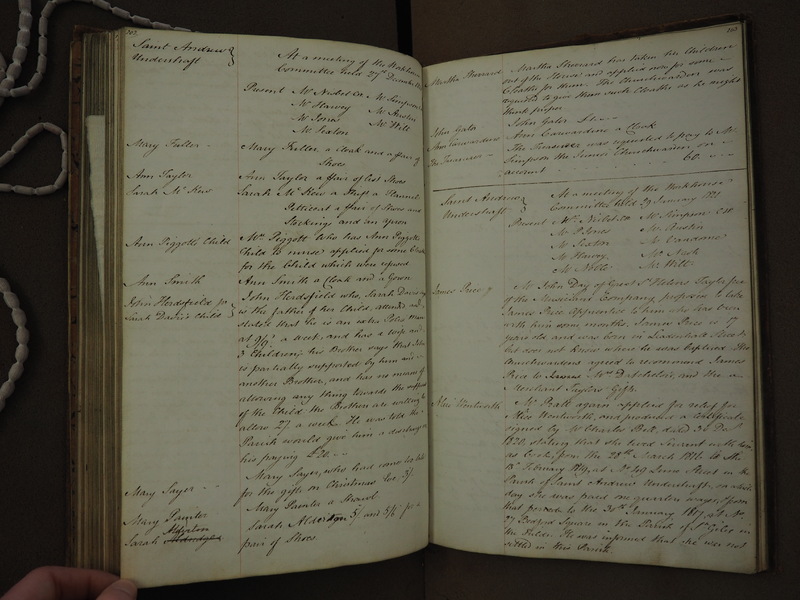 202
Saint Andrew
Undershaft
At a meeting of the Workhouse
Committee held 27th December
Present Mr Nesbit CW Mr Simpson
Mr Harvey Mr Austin
Mr Jones Mr Witt
Mr Seaton
Mary Fuller Mary Fuller, a cloak and a pair of
Shoes
Ann Taylor Ann Taylor a pair of List Shoes
Sarah Mc Kew Sarah Mc Kew a Shift a Flannel
Petticoat a pair of Shoes and
Stockings and an apron
Ann Piggotts Child Mrs Piggott who has Ann Piggotts
Child to nurse applied for some Cloaths
for the Child which were refused
Ann Smith Ann Smith a Cloak and a Gown
John Herdsfield for
Sarah Davis's Child
John Herdsfield who, Sarah Davis
is the father of her Child, attended and
states that he is an extra Police Man
at 9/9 a week and has a wife and
3 Children, his Brother says that John
is partially supported by him and
another Brother, and has no means of
allowing any thing towards the support
of the Child the Brothers are willing to
allow 2/ a week. He was told the
Parish would give him a discharge on
his paying £20
Mary Sayer Mary Sayer, who had come too late
for the gift on Christmas Eve 5/
Mary Painter Mary Painter a Shawl
Sarah Alderton Sarah Alderton 5/ and 5/6 for a
pair of Shoes
203
Martha Sherrard Martha Sherrard has taken her Children
out of the House and applied now for some
Cloaths for them. The Churchwardens was
requested to give them such Cloaths as he might
think proper
John Gater John Gater
Ann Carwardine Ann Carwardine a Cloak
The Treasurer The Treasurer was requested to pay to Mr
Simpson the Senior Churchwarden on
account 60
Saint Andrew
Undershaft
At a meeting of the Workhouse
Committee held 29 January 1821
Present Mr Nesbit CW Mr Simpson CW
Mr Jones Mr Austin
Mr Seaton
Mr Harvey Mr Nash
Mr Noble Mr Witt
James Price Mr John Day of Great St Helens Taylor free
of the Musicians Company proposes to take
James Price apprentice to him who has been
with him some months. James Price is
years old and was born in Leadenhall Street
but does not know where he was baptized The
Churchwardens agreed to recommend James
Price to Mrs and the
Merchant Taylors Gifts.
Alice Wentworth Mr Park again applied for relief for
Alice Wentworth, and produced a Certificate
signed by Mr Charles Bell dated 30 Decr
1820, stating that she lived Servant with him
as Cook, from the 28th March 1816 to the
18th February 1819, at No 119 Lime Street in the
Parish of Saint Andrew Undershaft, on which
day she was paid one quarters wages, & from
that period to the 30th January 1819 at No
27 Bedford Square in the Parish of St Giles in
the Fields. He was informed that she was not
settled in this Parish.